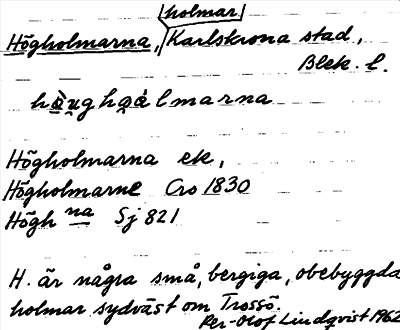 holmar
Högholmarna, Karlskrona stad,
Blek. l.
hàu̯ghǫálmarna
Högholmarna ek,
Högholmarne Cro 1830
Högh na Sj 821
H. är några små, bergiga, obebyggda
holmar sydväst om Trossö.
Per-Olof Lindqvist 1962